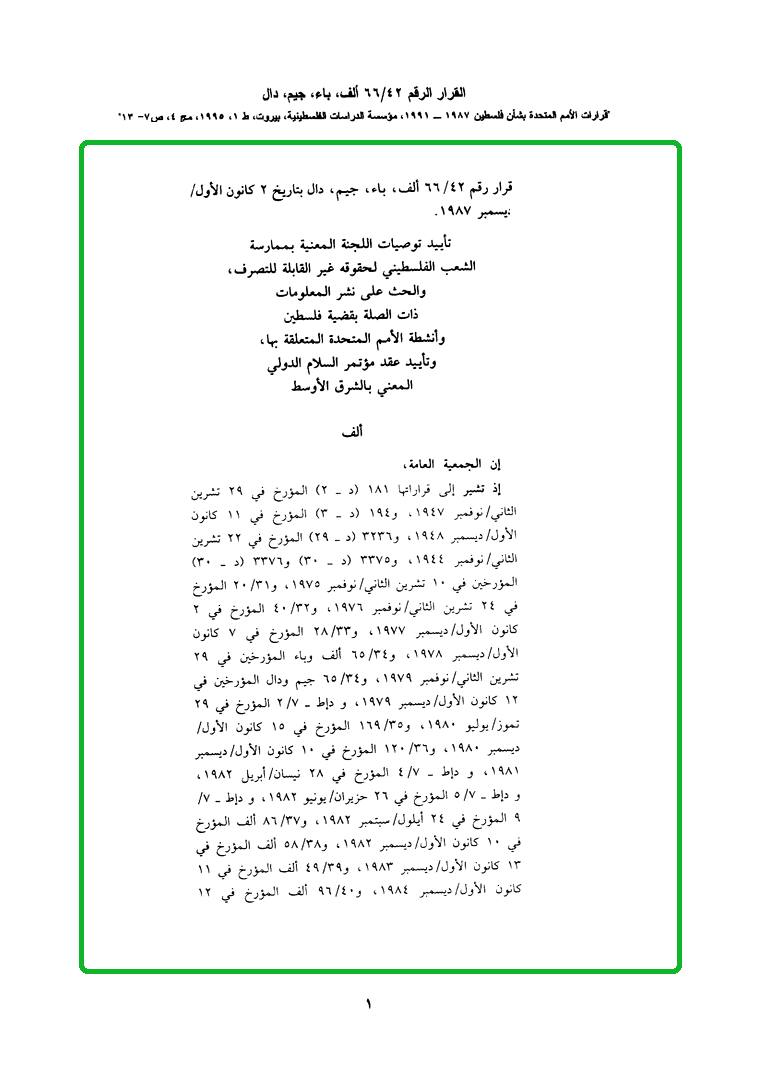 القرار الرقم ٦٦/٤٢ ألف، باء، جيم، دال
"قرارات الأمم المتحدة بشأن فلسطين ١٩٨٧ ــ ١٩٩١، مؤسسة الدراسات الفلسطينية، بيروت، ط ١، ١٩٩٥، مج ٤، ص٧- ١٣"
قرار رقم ٦٦/٤٢ ألف، باء، جيم، دال بتاريخ ٢ كانون الأول/
ديسمبر ١٩٨٧.
تأييد توصيات اللجنة المعنية بممارسة
الشعب الفلسطيني لحقوقه غير القابلة للتصرف،
والحث على نشر المعلومات
ذات الصلة بقضية فلسطين
وأنشطة الأمم المتحدة المتعلقة بها،
وتأييد عقد مؤتمر السلام الدولي
المعني بالشرق الأوسط
ألف
إن الجمعية العامة،
إذ تشير إلى قراراتها ١٨١ (د ـ ٢) المؤرخ في ٢٩ تشرين
الثاني/نوفمبر ١٩٤٧، و١٩٤ (د ـ ٣) المؤرخ في ١١ كانون
الأول/ديسمبر ١٩٤٨، و٣٢٣٦ (د ـ ٢٩) المؤرخ في ٢٢ تشرين
الثاني/نوفمبر ١٩٤٤، و٣٣٧٥ (د ـ ٣٠) و٣٣٧٦ (د ـ ٣٠)
المؤرخين في ١٠ تشرين الثاني/نوفمبر ١٩٧٥، و٢٠/٣١ المؤرخ
في ٢٤ تشرين الثاني/نوفمبر ١٩٧٦، و٤٠/٣٢ المؤرخ في ٢
كانون الأول/ديسمبر ١٩٧٧، و٢٨/٣٣ المؤرخ في ٧ كانون
الأول/ديسمبر ١٩٧٨، و٦٥/٣٤ ألف وباء المؤرخين في ٢٩
تشرين الثاني/نوفمبر ١٩٧٩، و٦٥/٣٤ جيم ودال المؤرخين في
١٢ كانون الأول/ديسمبر ١٩٧٩، و دإط ـ ٢/٧ المؤرخ في ٢٩
تموز/يوليو ١٩٨٠، و١٦٩/٣٥ المؤرخ في ١٥ كانون الأول/
ديسمبر ١٩٨٠، و١٢٠/٣٦ المؤرخ في ١٠ كانون الأول/ديسمبر
١٩٨١، و دإط ـ ٤/٧ المؤرخ في ٢٨ نيسان/أبريل ١٩٨٢،
و دإط ـ ٥/٧ المؤرخ في ٢٦ حزيران/يونيو ١٩٨٢، و دإط ـ ٧/
٩ المؤرخ في ٢٤ أيلول/سبتمبر ١٩٨٢، و٨٦/٣٧ ألف المؤرخ
في ١٠ كانون الأول/ديسمبر ١٩٨٢، و٥٨/٣٨ ألف المؤرخ في
١٣ كانون الأول/ديسمبر ١٩٨٣، و٤٩/٣٩ ألف المؤرخ في ١١
كانون الأول/ديسمبر ١٩٨٤، و٩٦/٤٠ ألف المؤرخ في ١٢
١